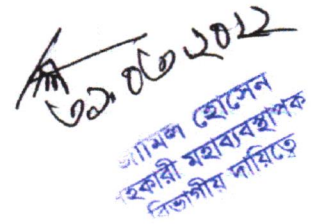 ৩১.০৩.২০২২
জামিল হোসেন
সহকারী মহাব্যবস্থাপক
বিভাগীয় দায়িত্বে